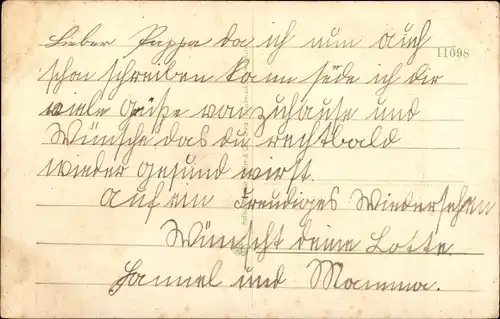 Lieber Pappa da ich nun auch
11098
schon schreiben kann séde ich dir
viele Grüße von zuhause und
Wünsche das du rechtbald
wieder gesund wirst.
auf ein Freudiges Wiedersehen
Wünscht deine Lotte
Hannel und Mamma.